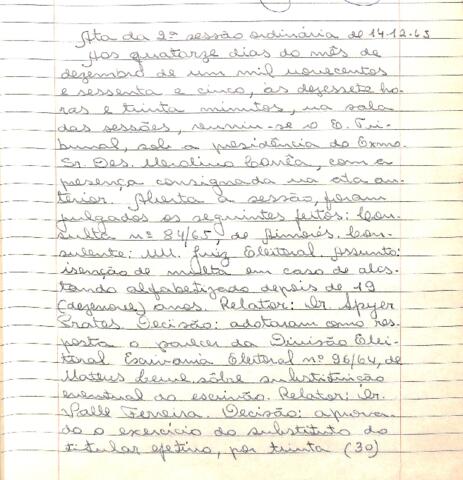 Ata da 2ª sessão ordinária de 14.12.65
Aos quatorze dias do mês de
dezembro de um mil novecentos
e sessenta e cinco, às dezessete ho-
ras e trinta minutos, na sala
das sessões, reuniu-se o E. Tri-
bunal, sob a presidência do Exmo.
Sr. Des. Merolino Corrêa, com a
presença consignada na ata an-
terior. Aberta a sessão, foram
julgados os seguintes feitos: Con-
sulta nº 84/65, de Aimorés. Con-
sulente: M. Juiz Eleitoral. Assunto:
isenção de multa em caso de alis-
tando alfabetizado depois de 19
(dezenove) anos. Relator: Dr. Apyer
Prates. Decisão: adotaram como res-
posta o parecer da Divisão Elei-
toral Escrivania Eleitoral nº 96/64, de
Mateus Leme sôbre substituição
eventual do escrivão. Relator: Dr.
Valle Ferreira. Decisão: aprova-
do o exercício do substituto do
titular efetivo, por trinta (30)